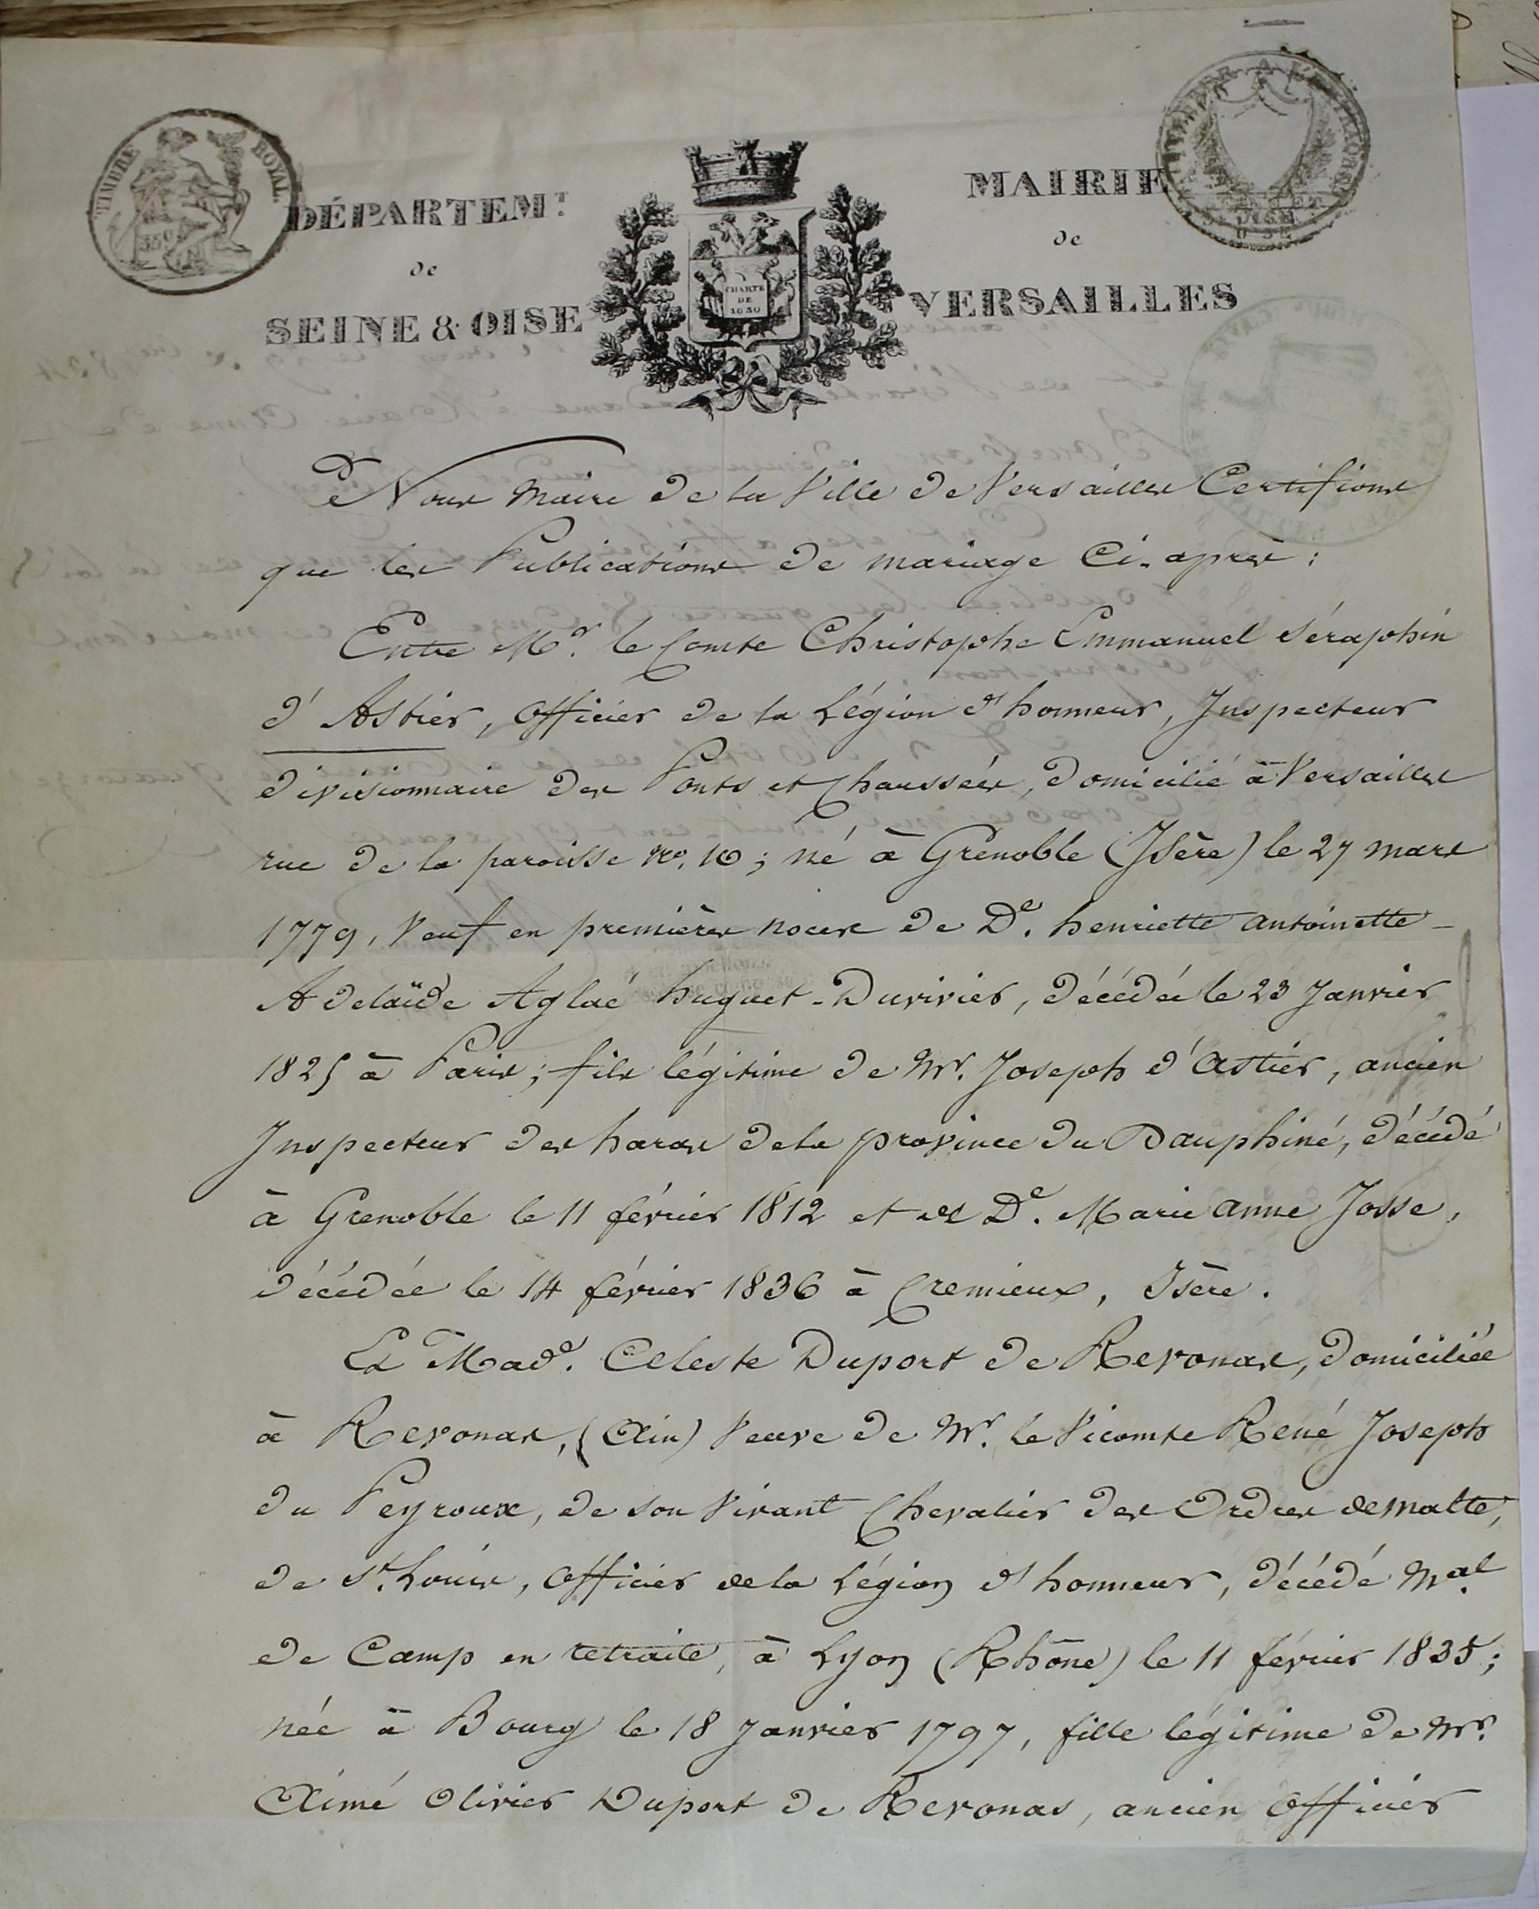 TIMBRE ROYAL
35C
DÉPARTEMT.
de
SEINE & OISE
CHARTE
DE
1830
MAIRIE
de
VERSAILLES
Nous Maire de la Ville de Versailles Certifions
que les Publications de mariage Ci-après :
Entre Mr. le Comte Christophe Emmanuel Séraphin
d'Astier, officier de la Légion d'honneur, Inspecteur
divisionnaire des Ponts et Chaussées, domicilié à Versailles
rue de la paroisse no. 10 ; né à Grenoble (Isère) le 27 mars
1779, Veuf en premières noces de De. henriette antoinette
Adelaïde Aglaé huguet-Duvivier, décédée le 23 Janvier
1825 à Paris ; fils légitime de Mr. Joseph d'Astier, ancien
Inspecteur des haras de la province du Dauphiné, décédé
à Grenoble le 11 février 1812 et de De. Marie anne Josse,
décédée le 14 février 1836 à Cremieux, Isère.
Et Made. Celeste Duport de Revonas, domiciliée
à Revonas, (Ain) Veuve de Mr. le Vicomte René Joseph
du Peyroux, de son Vivant Chevalier des Ordres de Malte,
de St. Louis, officier de la Légion d'honneur, décédé Mal.
de Camp en retraite, à Lyon (Rhône) le 11 février 1835 ;
née à Bourg le 18 Janvier 1797, fille légitime de Mr.
Aimé Olivier Duport de Revonas, ancien officier